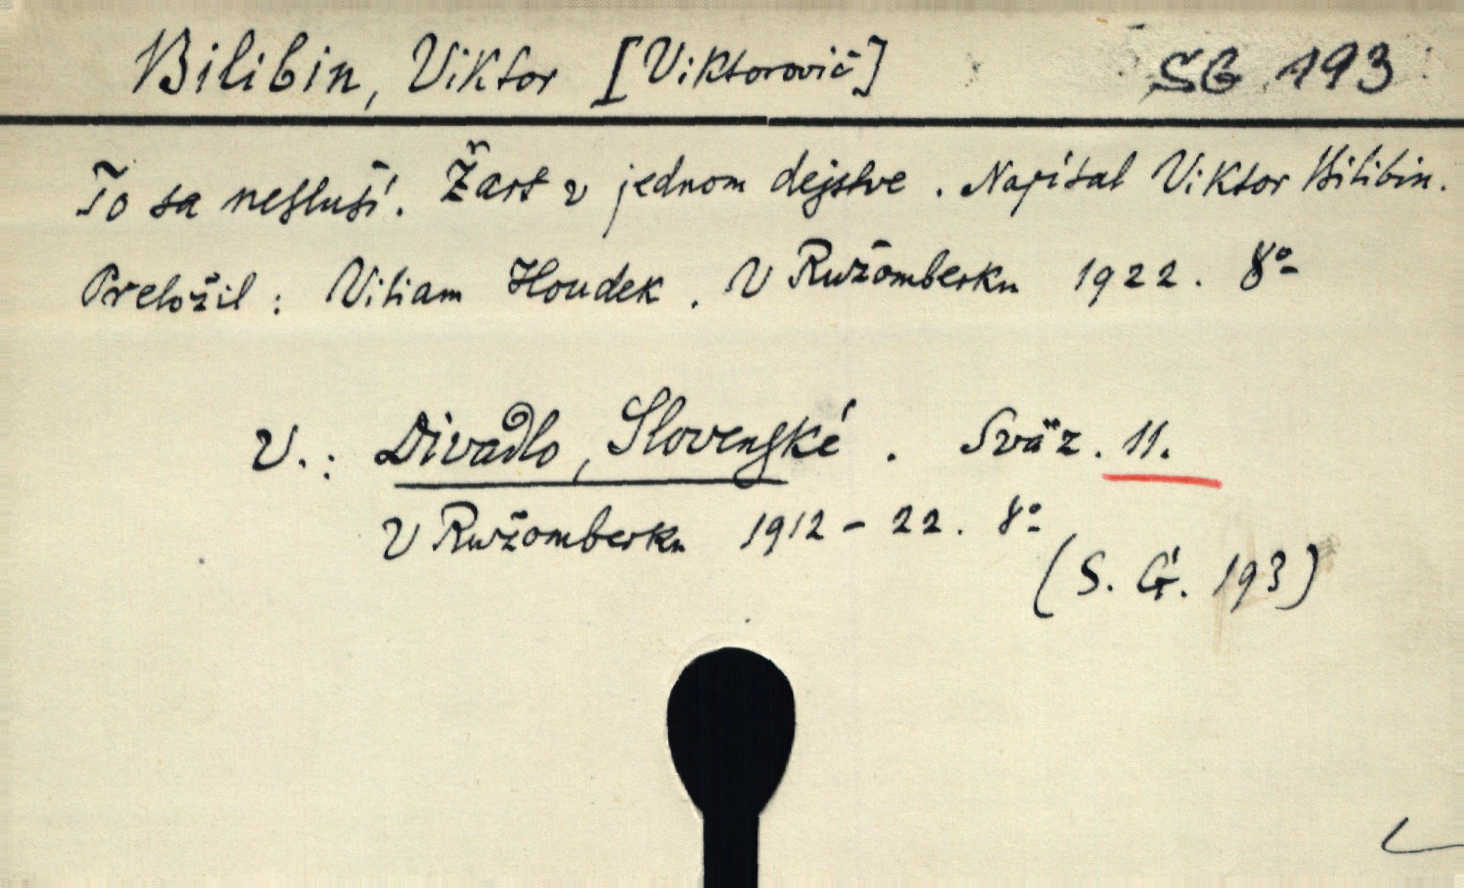 Bilibin, Viktor [Viktorovič] SG 193
To sa nesluší. Žart v jednom dejstve. Napísal Viktor Bilibin.
Preložil: Viliam Houdek. V Ružomberku 1922. 8°
V.: Divadlo, Slovenské. Sväz. 11.
V Ružomberku 1912-22. 8°
(S. G. 193)